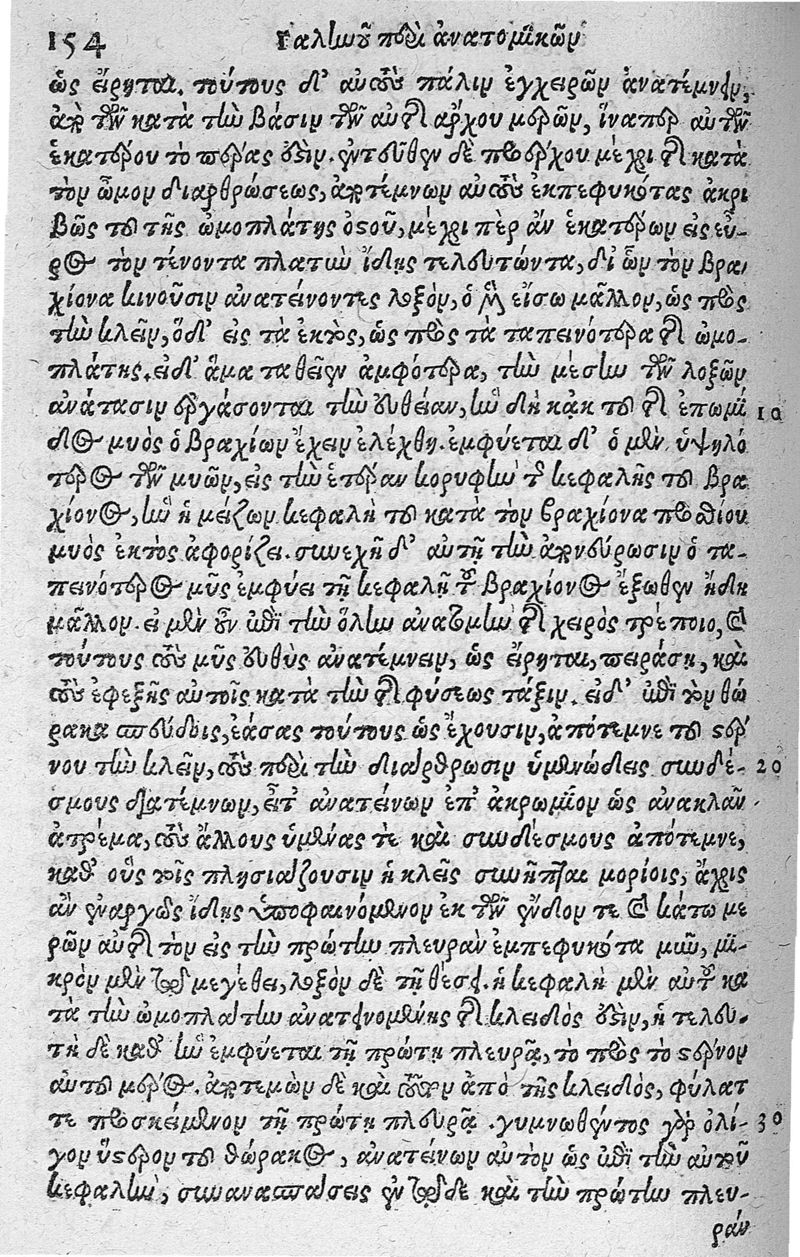 154 Γαληνοῦ περὶ ἀνατομικῶν
ὡς εἴρηται. τούτους δ' αὐτοὺς πάλιν ἐγχειρῶν ἀνατέμνειν,
ἀπὸ τῶν κατὰ τὴν βάσιν τῶν αὐτῆς ἄρχου μερῶν, ἵναπερ αὐτῶν
ἑκατέρου τὸ πέρας ὅξιν. ἐντεῦθεν δὲ προέρχου μέχρι τῆς κατὰ
τὸν ὦμον διαρθρώσεως, ἀποτέμνων αὐτοὺς ἐκπεφυκότας ἀκρι
βῶς τοῦ τῆς ὠμοπλάτης ὀστοῦ, μέχρι πὲρ ἂν ἑκατέρων εἰς εὖ-
ρος τὸν τένοντα πλατὺν ἴδῃς τελευτῶντα, δι' ὧν τὸν βρα-
χίονα κινοῦσιν ἀνατείνοντες λοξὸν, ὁ μὲν εἴσω μᾶλλον, ὡς πρὸς
τὴν κλεῖν, ὁ δ' εἰς τὰ ἐκτὸς, ὡς πρὸς τὰ ταπεινότερα τῆς ὠμο-
πλάτης. εἰ δ' ἅμα ταθεῖεν ἀμφότερα, τὴν μέσην τῶν λοξῶν
ἀνάτασιν ἐργάσονται τὴν εὐθεῖαν, ἣν δὴ κἀκ τοῦ τῆς ἐπωμί 10
δος μυὸς ὁ βραχίων ἔχειν ἐλέχθη. ἐμφύεται δ' ὁ μὲν ὑψηλό
τερος τῶν μυῶν, εἰς τὴν ἑτέραν κορυφὴν τῆς κεφαλῆς τοῦ βρα
χίονος, ἣν ἡ μείζων κεφαλὴ τοῦ κατὰ τὸν βραχίονα προσθίου
μυὸς ἐκτὸς ἀφορίζει. συνεχῆ δ' αὐτῇ τὴν ἀπονεύρωσιν ὁ τα-
πεινότερος μῦς ἐμφύει τῇ κεφαλῇ τοῦ βραχίονος ἔξωθεν ἤδη
μᾶλλον. εἰ μὲν οὖν ἐπὶ τὴν ὅλην ἀνατομὴν τῆς χειρὸς τρέποιο, καὶ
τούτους τοὺς μῦς εὐθὺς ἀνατέμνειν, ὡς εἴρηται, πειράσῃ, καὶ
τοὺς ἐφεξῆς αὐτοῖς κατὰ τὴν τῆς φύσεως τάξιν. εἰ δ' ἐπὶ τὸν θώ
ρακα σπεύδοις, ἐάσας τούτους ὡς ἔχουσιν, ἀπότεμνε τοῦ στέρ
νου τὴν κλεῖν, τοὺς περὶ τὴν διάρθρωσιν ὑμενώδεις συνδέ- 20
σμους διατέμνων, εἶτ' ἀνατείνων ἐπ' ἀκρωμίον ὡς ἀνακλᾶν
ἀτρέμα, τοὺς ἄλλους ὑμένας τὲ καὶ συνδέσμους ἀπότεμνε,
καθ' οὓς τοῖς πλησιάζουσιν ἡ κλεὶς συνῆπται μορίοις, ἄχρις
ἂν ἐναργῶς ἴδῃς ὑποφαινόμενον ἐκ τῶν ἔνδον τε καὶ κάτω με
ρῶν αὐτῆς τὸν εἰς τὴν πρώτην πλευρὰν ἐμπεφυκότα μῦν, μι-
κρὸν μὲν τῷ μεγέθει, λοξὸν δὲ τῇ θέσει. ἡ κεφαλὴ μὲν αὐτοῦ κα
τὰ τὴν ὠμοπλάτην ἀνατεινομένης τῆς κλειδὸς ὅξιν, ἡ τελευ-
τὴ δὲ καθ' ἣν ἐμφύεται τῇ πρώτῃ πλευρᾷ, τὸ πρὸς τὸ στέρνον
αὐτοῦ μέρος. ἀποτεμὼν δὲ καὶ τοῦτον ἀπὸ τῆς κλειδὸς, φύλατ
τε προσκείμενον τῇ πρώτῃ πλευρᾷ. γυμνωθέντος γὰρ ὀλί- 30
γον ὕστερον τοῦ θώρακος, ἀνατείνων αὐτὸν ὡς ἐπὶ τὴν αὑτοῦ
κεφαλὴν, συνανασπάσεις ἐν τῷδε καὶ τὴν πρώτην πλευ-
ράν